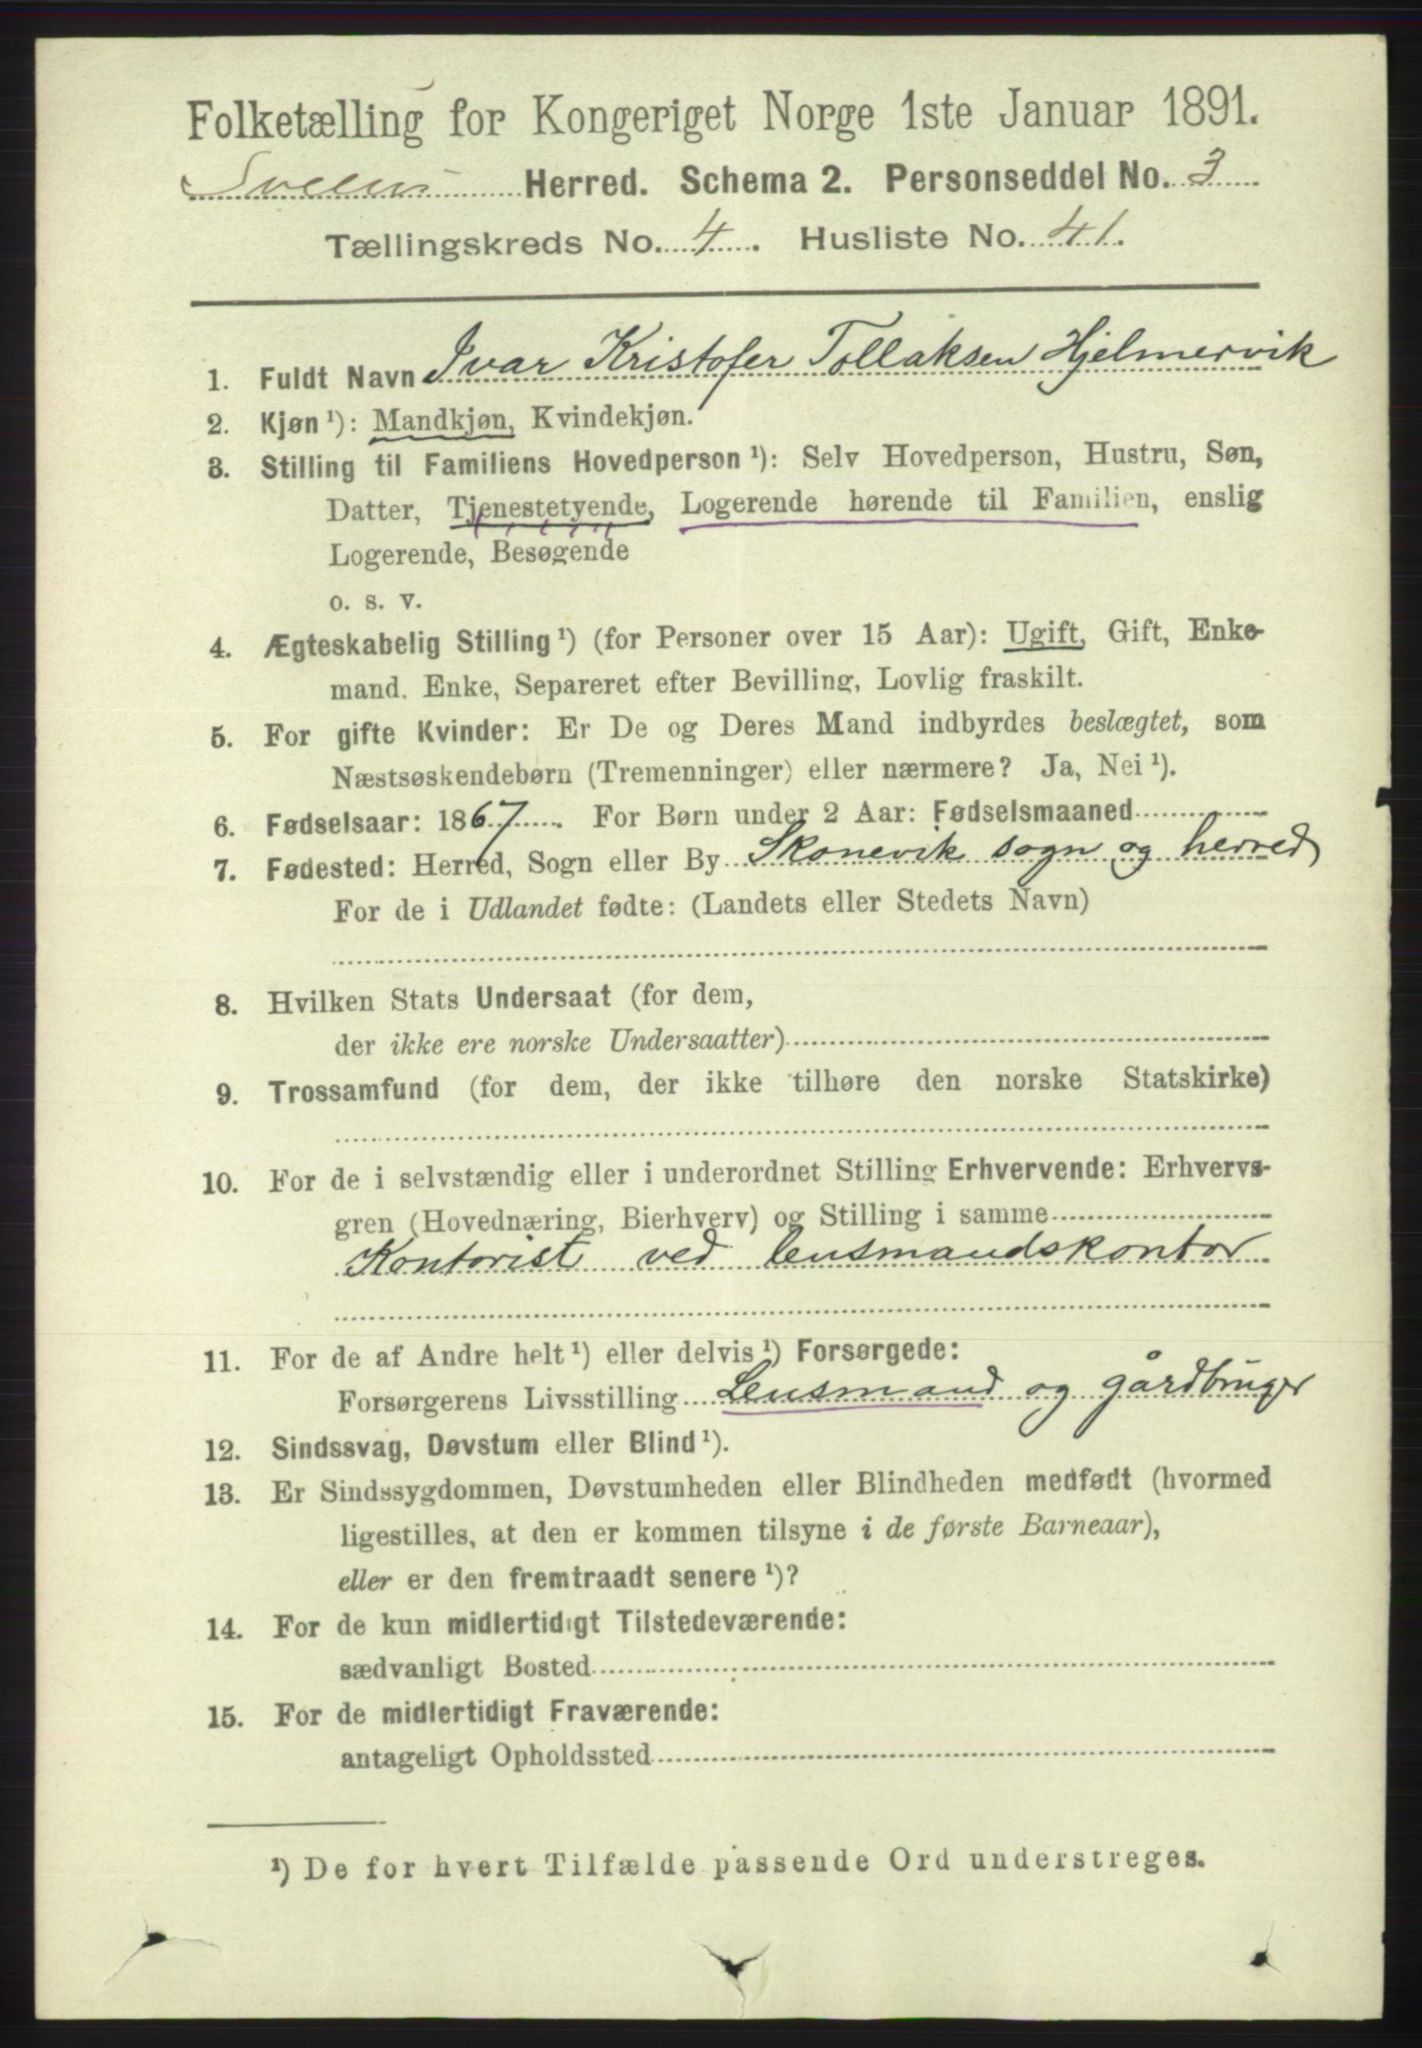 Folketælling for Kongeriget Norge 1ste Januar 1891.
Sveens Herred. Schema 2. Personseddel No. 3
Tællingskreds No. 4. Husliste No. 41.
1. Fuldt Navn Ivar Kristofer Tollaksen Hjelmervik
2. Kjøn ¹): Mandkjøn, Kvindekjøn.
3. Stilling til Familiens Hovedperson ¹): Selv Hovedperson, Hustru, Søn,
Datter, Tjenestetyende, Logerende hørende til Familien, enslig
Logerende, Besøgende
o. s. v.
4. Ægteskabelig Stilling ¹) (for Personer over 15 Aar): Ugift, Gift, Enke-
mand. Enke, Separeret efter Bevilling, Lovlig fraskilt.
5. For gifte Kvinder: Er De og Deres Mand indbyrdes beslægtet, som
Næstsøskendebørn (Tremenninger) eller nærmere? Ja, Nei ¹).
6. Fødselsaar: 1867. For Børn under 2 Aar: Fødselsmaaned
7. Fødested: Herred, Sogn eller By Skonevik sogn og herred
For de i Udlandet fødte: (Landets eller Stedets Navn)
8. Hvilken Stats Undersaat (for dem,
der ikke ere norske Undersaatter)
9. Trossamfund (for dem, der ikke tilhøre den norske Statskirke)
10. For de i selvstændig eller i underordnet Stilling Erhvervende: Erhvervs-
gren (Hovednæring, Bierhverv) og Stilling i samme
Kontorist ved lensmandskontor
11. For de af Andre helt ¹) eller delvis ¹) Forsørgede:
Forsørgerens Livsstilling Lensmand og gårdbruger
12. Sindssvag, Døvstum eller Blind ¹).
13. Er Sindssygdommen, Døvstumheden eller Blindheden medfødt (hvormed
ligestilles, at den er kommen tilsyne i de første Barneaar),
eller er den fremtraadt senere ¹)?
14. For de kun midlertidigt Tilstedeværende:
sædvanligt Bosted
15. For de midlertidigt Fraværende:
antageligt Opholdssted
¹) De for hvert Tilfælde passende Ord understreges.